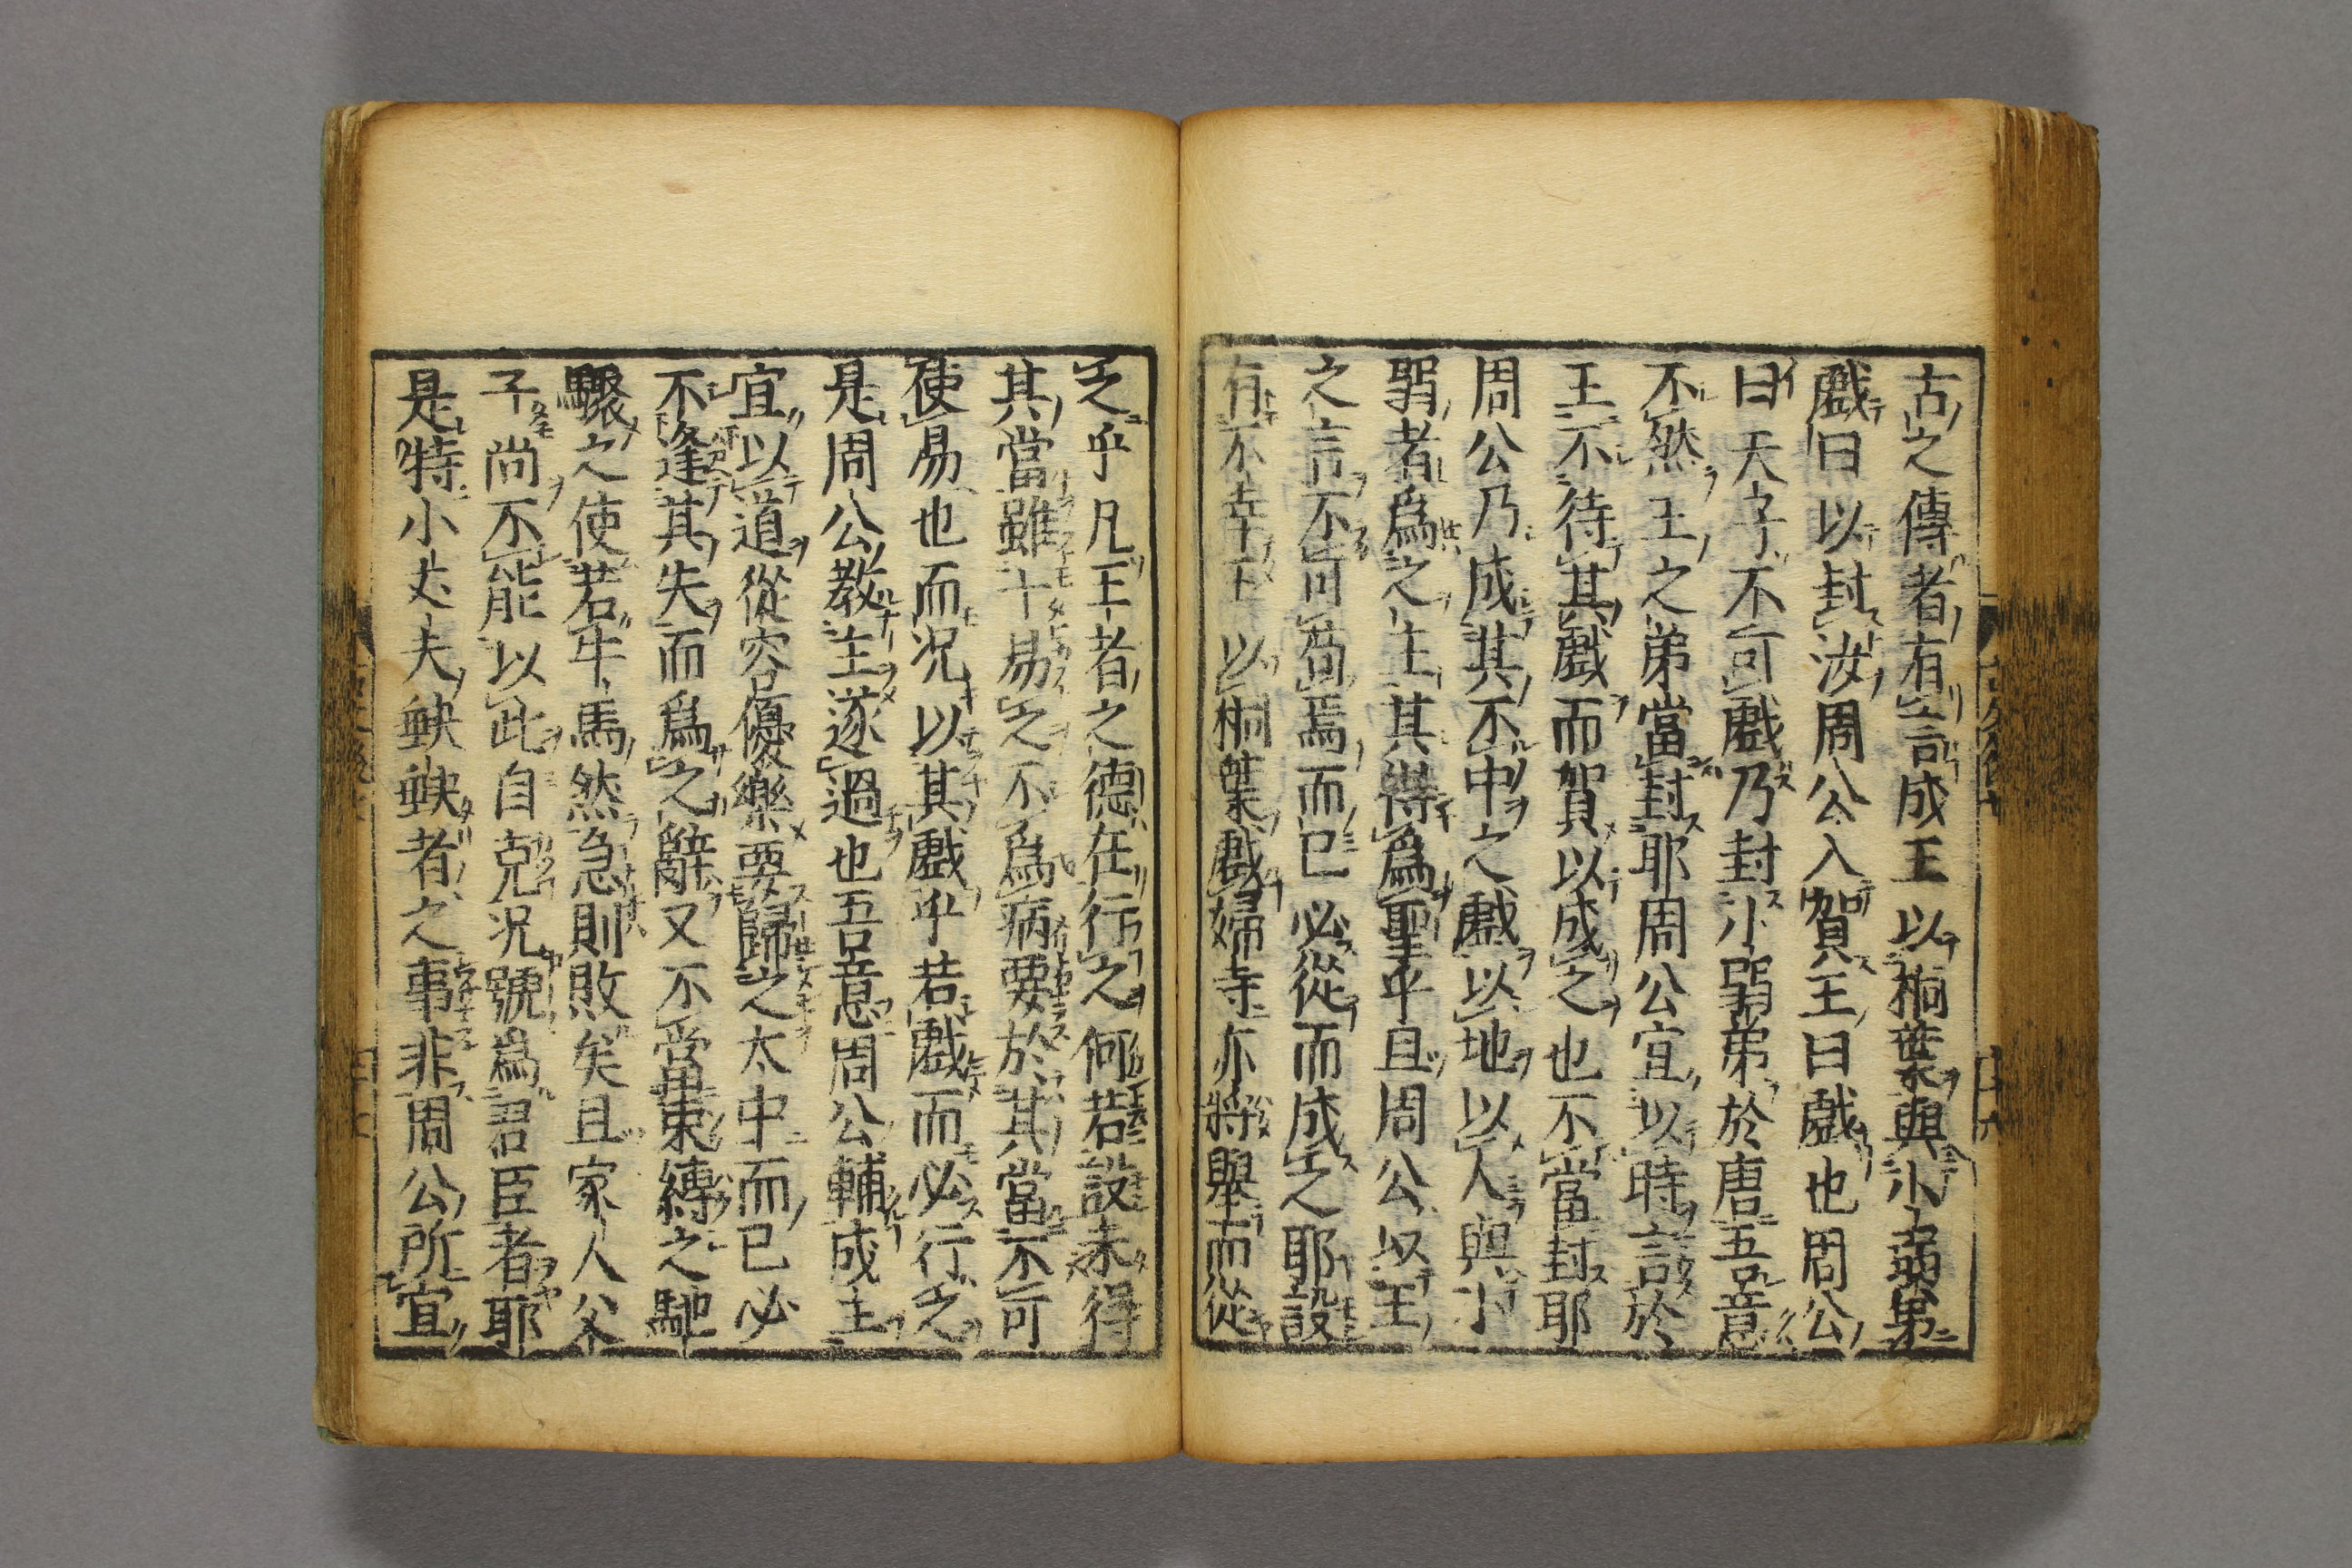 古之傳者有言成王以桐葉與小弱弟
戲曰以封汝周公入賀王曰戲也周公
曰天子不可戲乃封小弱弟於唐吾意
不然王之弟當封耶周公宜以時言於
王不待其戲而賀以成之也不當封耶
周公乃成其不中之戲以地以人與小
弱者爲之主其得爲聖乎且周公以王
之言不可苟焉而已必從而成之耶設
有不幸王以桐葉戲婦寺亦將舉而從
之乎凡王者之德在行之何若設未得
其當雖十易之不爲病要於其當不可
使易也而况以其戲乎若戲而必行之
是周公教王遂過也吾意周公輔成王
宜以道從容優樂要歸之太中而已必
不逢其失而爲之辭又不當束縛之馳
驟之使若牛馬然急則敗矣且家人父
子尚不能以此自克况號爲君臣者耶
是特小丈夫缺缺者之事非周公所宜